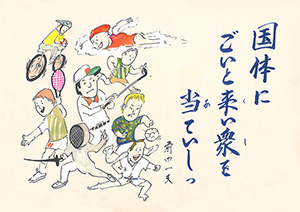 国体に
ごいと来い衆を
くし
当ていしっ
あ
前田一夫